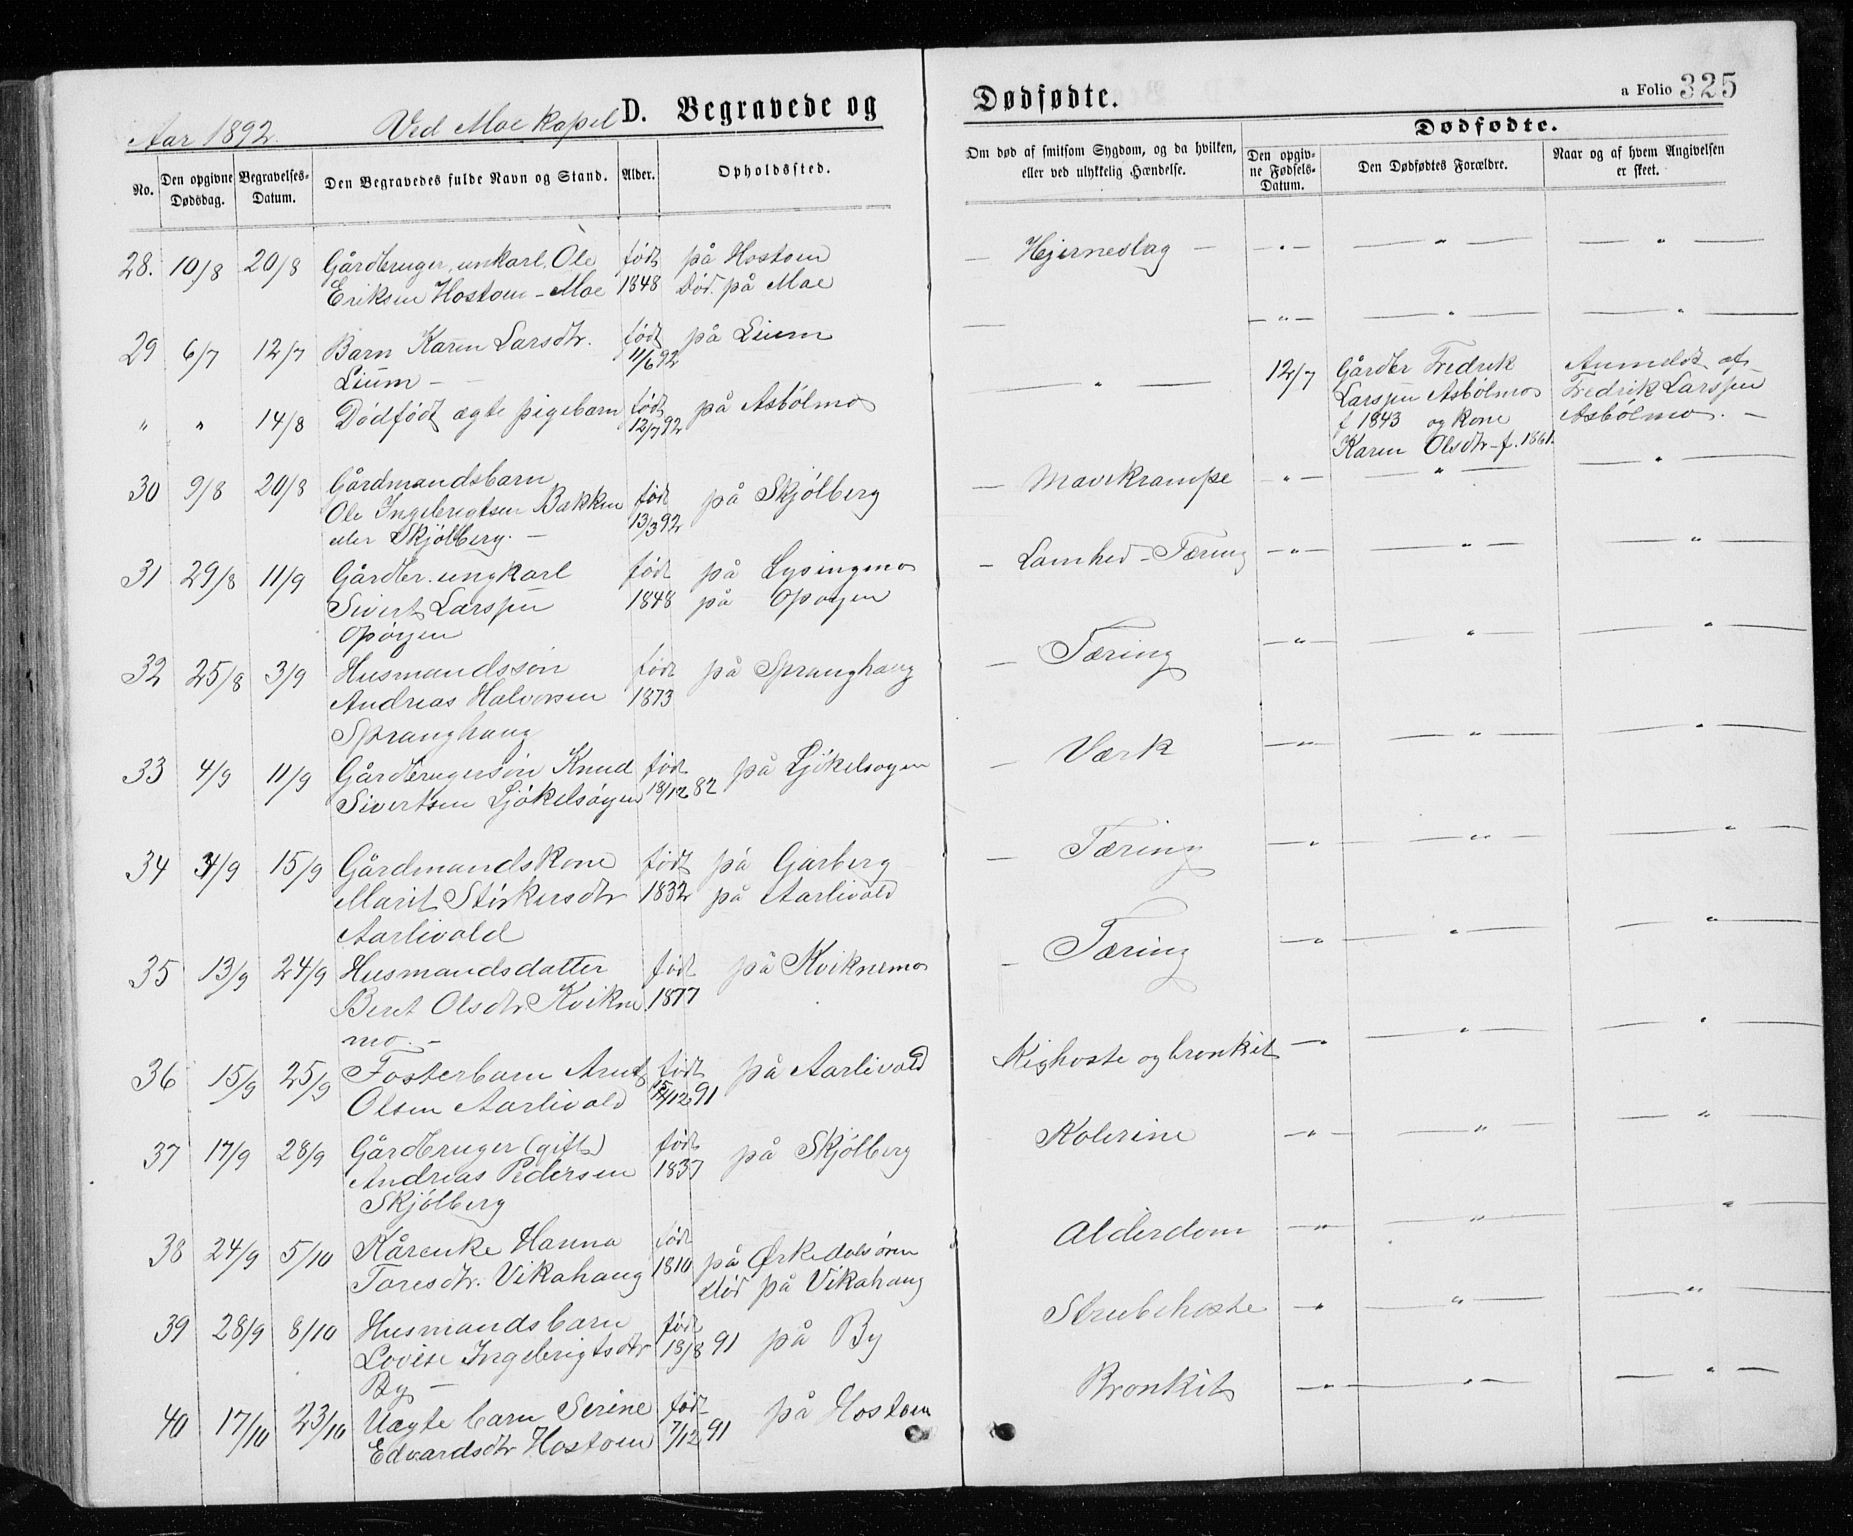 Aar 1892. Ved Moe kapel D. Begravede og Dødfødte. a Folio 325
No. Den opgivne Dødsdag. Begravelses-Datum. Den Begravedes fulde Navn og Stand. Alder. Opholdssted. Om død af smitsom Sygdom, og da hvilken, eller ved ulykkelig Hændelse. Dødfødte. Den opgivne Fødsels-Datum. Den Dødfødtes Forældre. Naar og af hvem Angivelsen er skeet.
28. 10/8 20/8 Gårdbruger, unkarl, Ole født på Hostom — Hjerneslag — - " - — " — — " —
Eriksen Hostom - Moe 1848 Død på Moe
29 6/7 12/7 Barn Karen Larsdtr. født på Lium — - " - — " — — " —
Lium - 11/6 92
" " 14/8 Dødfødt ægte pigebarn født på Asbölmo — " — 12/7 Gårdbr Fredrik Anmeldt af
12/7 92 Larssen Asbölmo Fredrik Larssen
f 1843 og kone Asbölmo. -
Karen Olsdtr - f. 1861.
30 9/8 20/8 Gårdmandsbarn — Mavekrampe - " - — " — — " —
Ole Ingebrigtsen Bakken født på Skjölberg
eller Skjölberg. - 13/3 92
31 29/8 11/9 Gårdbr. ungkarl født på Lysingmo — Lamhed - Tæring - " - — " — — " —
Sivert Larssen 1848 på Opöyen
Opöyen
32 25/8 3/9 Husmandssön født på Spranghaug — Tæring - " - — " — — " —
Andreas Halvorsen 1873
Spranghaug
33 4/9 11/9 Gårdbrugersön Knud født på Ljökelsöyen — Værk - " - — " — — " —
Sivertsen Ljökelsöyen 18/12 82
34 4/9 15/9 Gårdmandskone født på Garberg — Tæring - " - — " — — " —
Marit Störkersdtr 1832 på Aarlivold
Aarlivold
35 13/9 24/9 Husmandsdatter født på Kviknemo — Tæring - " - — " — — " —
Beret Olsdtr Kvikne 1877
mo. -
36 15/9 25/9 Fosterbarn Arnt født på Aarlivold Kighoste og bronkit - " - — " — — " —
Olsen Aarlivold 15/12 91
37 17/9 28/9 Gårdbruger (gift) født på Skjölberg Kolerine - " - — " — — " —
Andreas Pedersen 1837
Skjölberg
38 24/9 5/10 Kårenke Hanna født på Ørkedalsören Alderdom - " - — " — — " —
Toresdtr. Vikahaug 1810 död på Vikahaug
39 28/9 8/10 Husmandsbarn født på By Strubehoste - " - — " — — " —
Lovise Ingebrigtsdtr 18/8 91
By -
40 17/10 23/10 Uægte barn Serine født på Hostom Bronkit - " - — " — — " —
Edvardsdtr Hostom 7/12 91